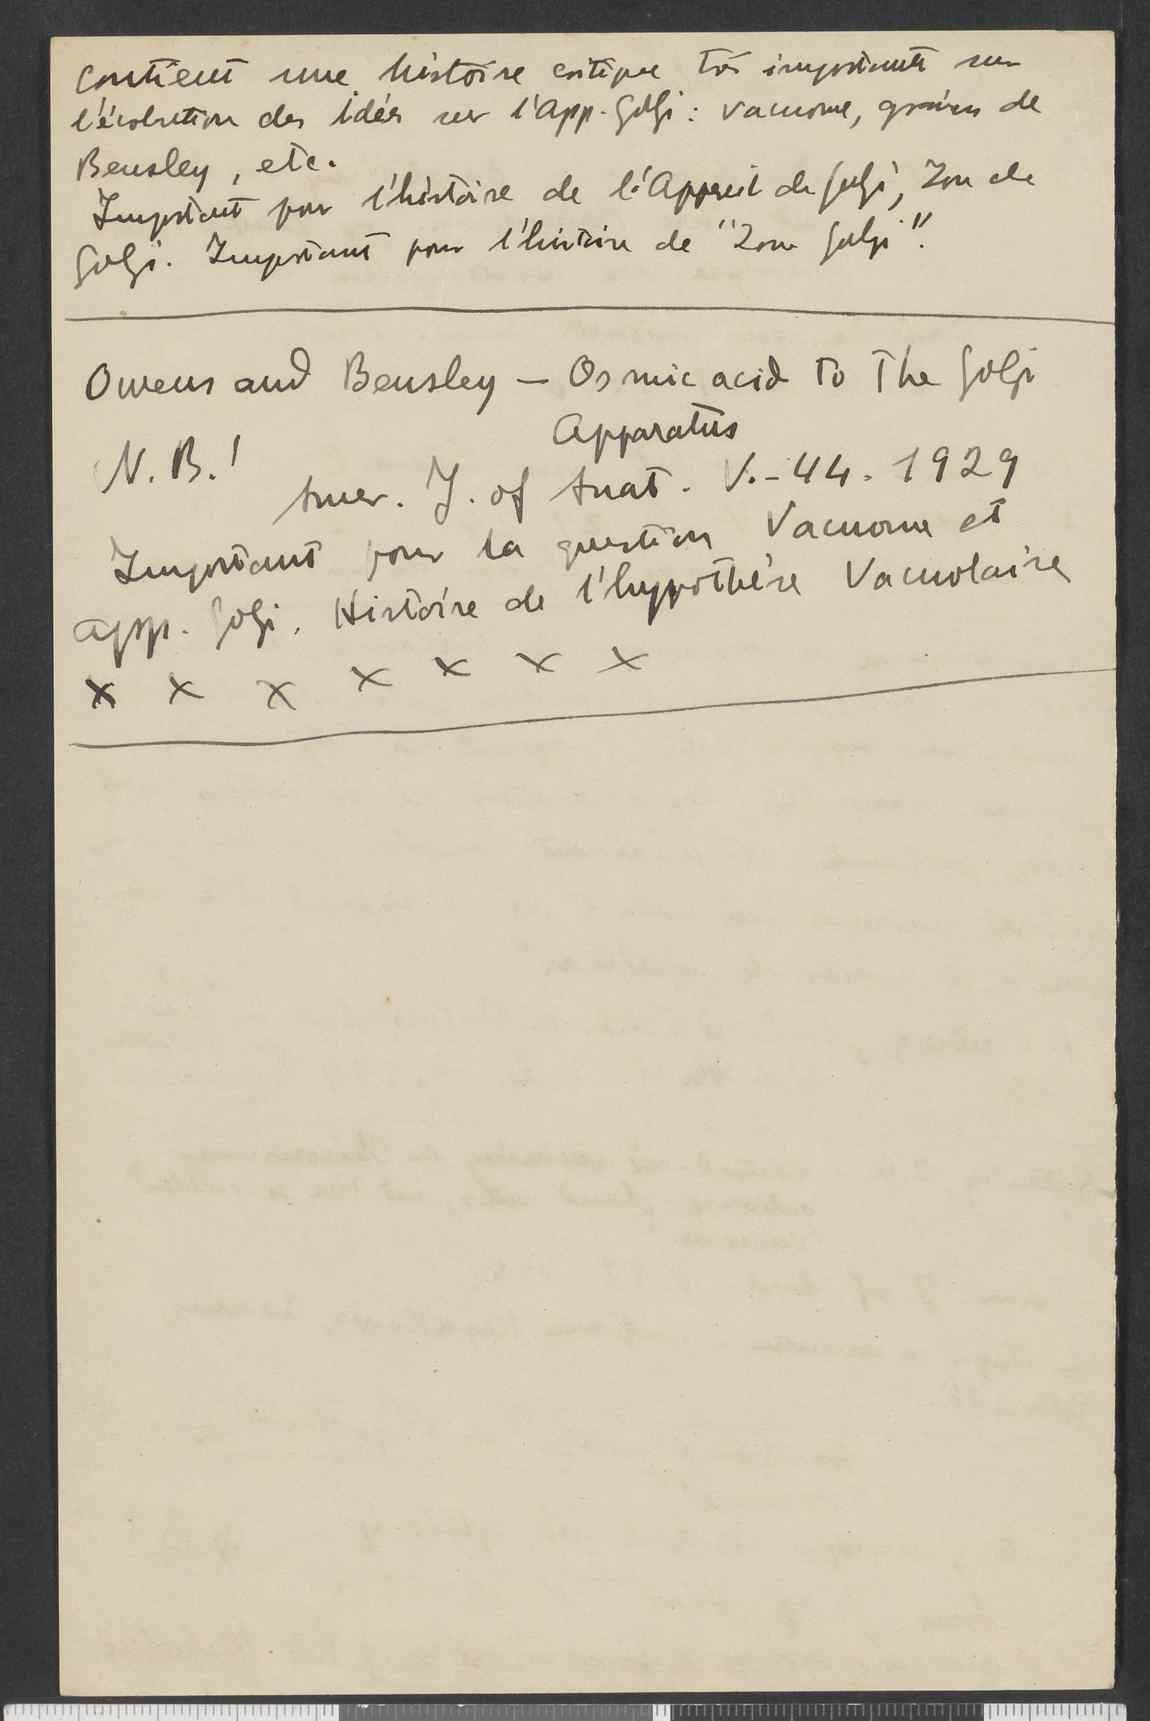 contient une histoire critique très importante sur
l'évolution des idées sur l'App. Golgi : vacuome, grains de
Bensley, etc.
Important pour l'histoire de l'Appareil de Golgi, Zone de
Golgi. Important pour l'histoire de "Zone Golgi".
Owens and Bensley — Osmic acid to the Golgi
Apparatus
N.B.!
Amer. J. of Anat. V.-44. 1929
Important pour la question Vacuome et
App. Golgi. Histoire de l'hypothèse Vacuolaire
x x x x x x x